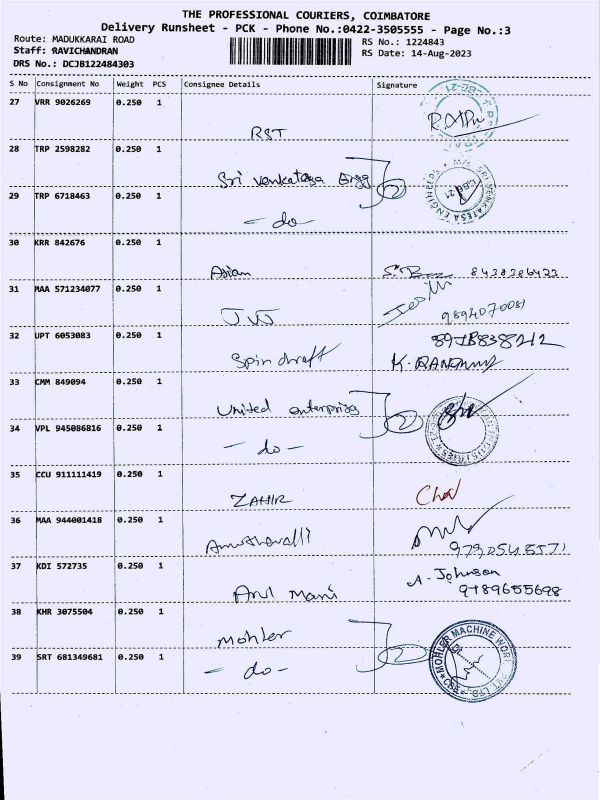 THE PROFESSIONAL COURIERS, COIMBATORE
Delivery Runsheet - PCK - Phone No.:0422-3505555 - Page No.:3
Route: MADUKKARAI ROAD
RS No.: 1224843
Staff: RAVICHANDRAN
RS Date: 14-Aug-2023
DRS No.: DCJB122484303
S No Consignment No Weight PCS Consignee Details Signature
27 VRR 9026269 0.250 1
RST
28 TRP 2598282 0.250 1
Sri venkatesa Engg
29 TRP 6718463 0.250 1
- do -
30 KRR 842676 0.250 1
Asian 8438386423
31 MAA 571234077 0.250 1
9894070081
32 UPT 6053083 0.250 1
Spin draft
33 CMM 849094 0.250 1
United enterprises
34 VPL 945086816 0.250 1
- do -
35 CCU 911111419 0.250 1
ZAHIR
36 MAA 944001418 0.250 1
37 KDI 572735 0.250 1
A. Johnson
Arul Mani 9789655698
38 KHR 3075504 0.250 1
Mohler
MOHLER MACHINE WORKS PVT LTD. * CBE *
39 SRT 681349681 0.250 1
- do -